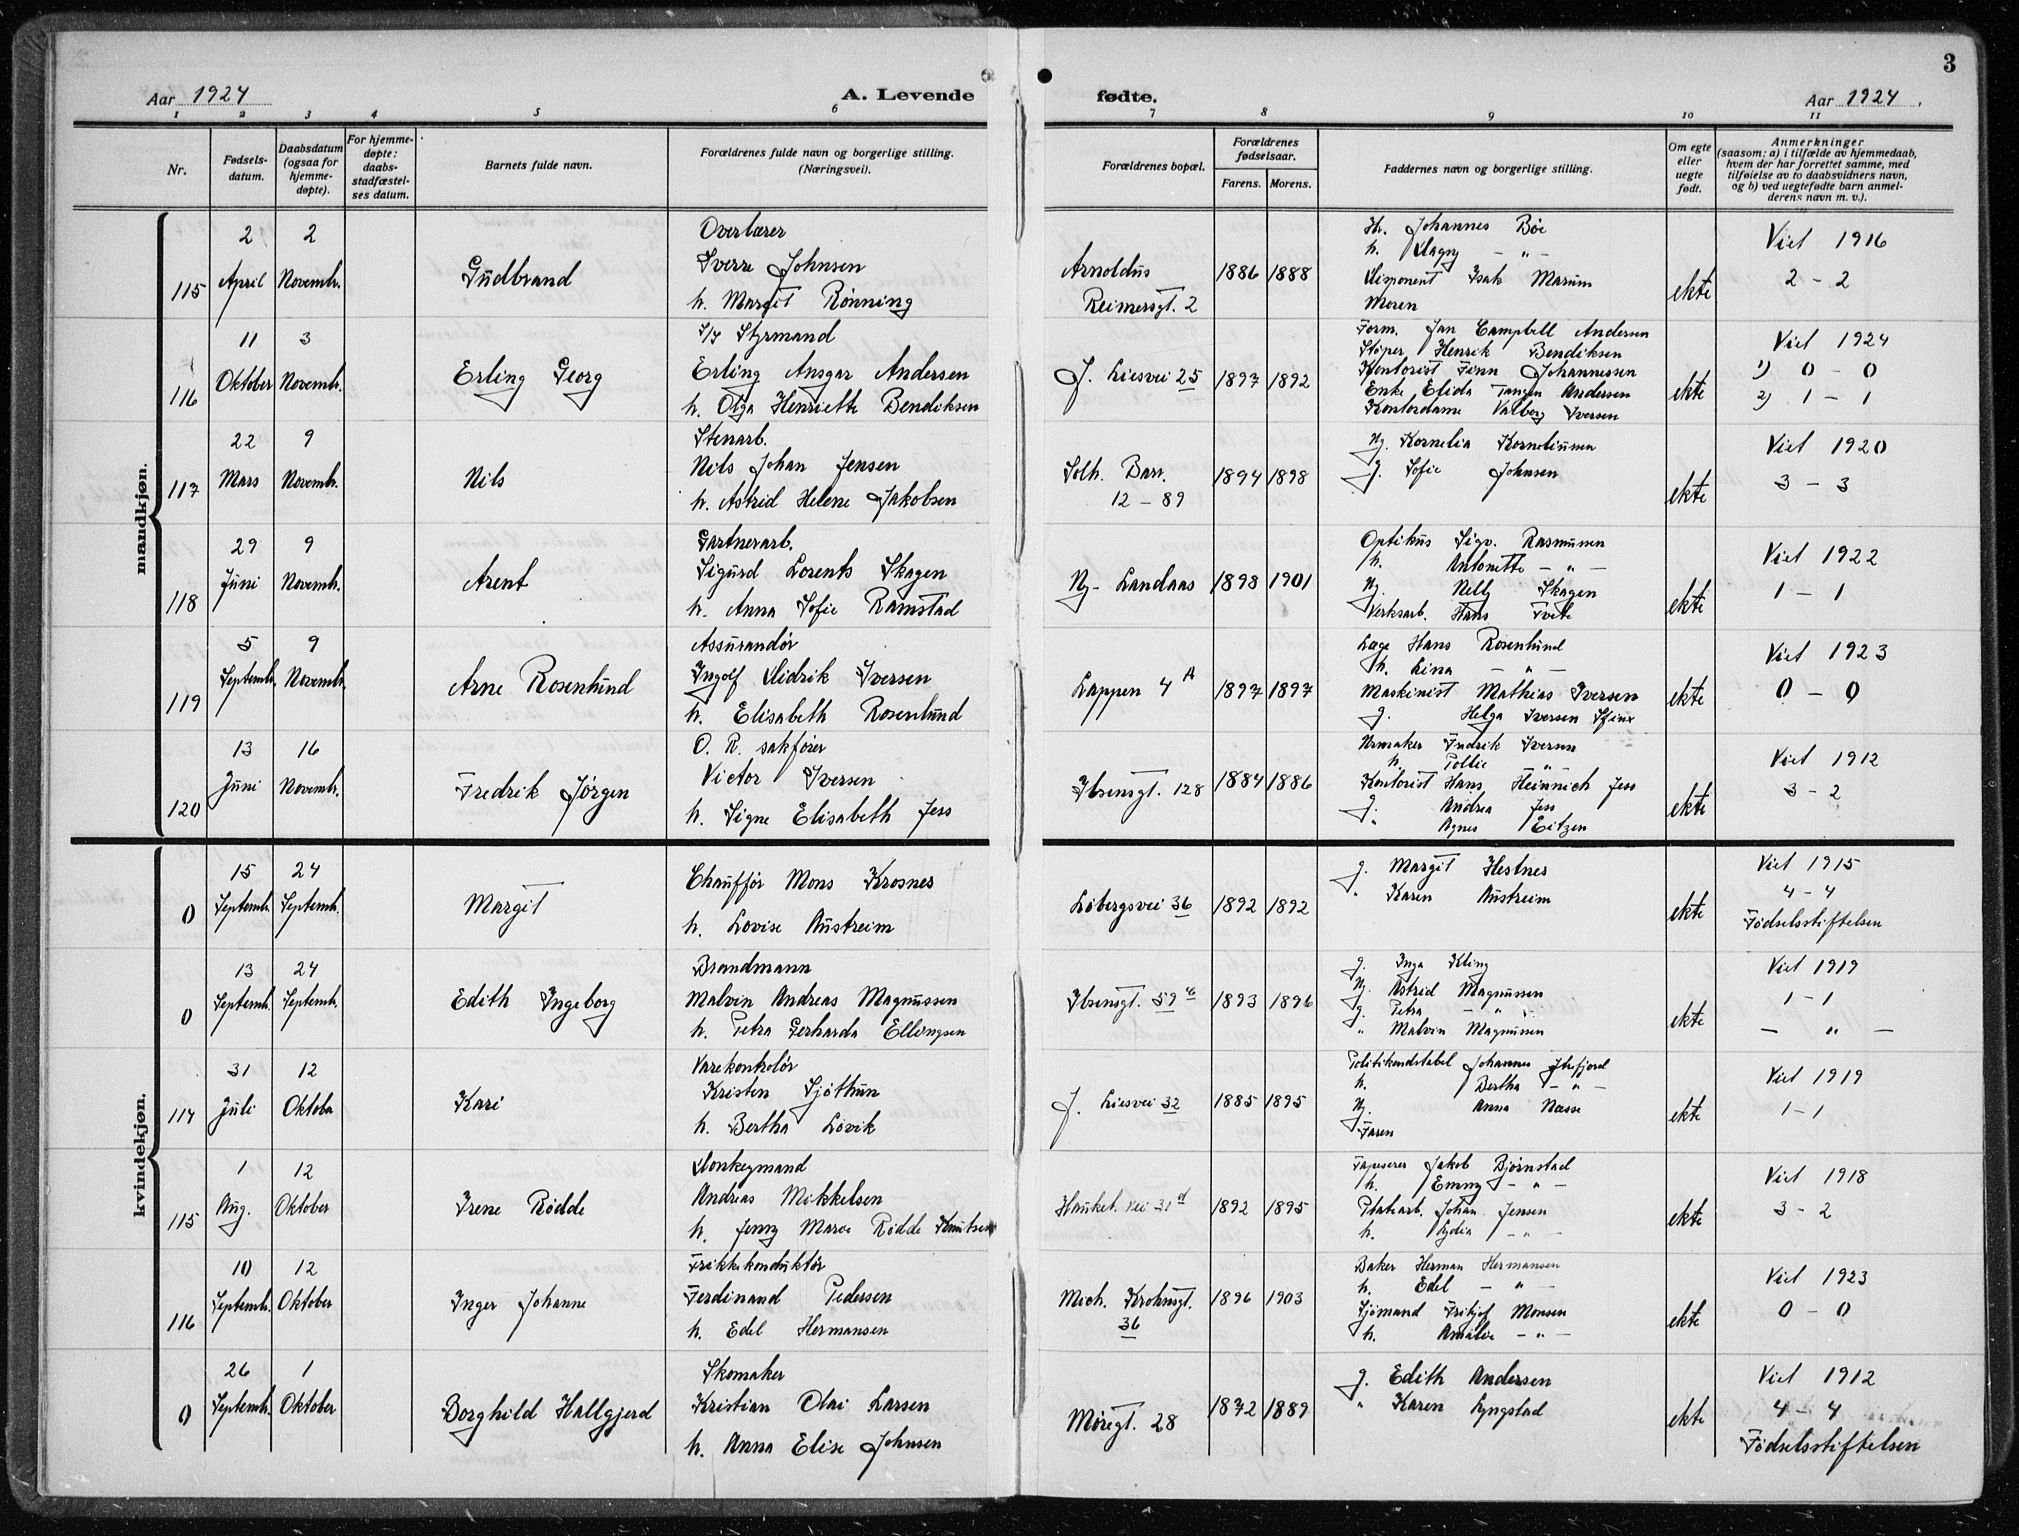 3
Aar 1924
A. Levende
fødte.
Aar 1924.
1 2 3 4 5 6 7 8 9 10 11
Nr.
Fødsels-
datum.
Daabsdatum
(ogsaa for
hjemme-
døpte).
For hjemme-
døpte:
daabs-
stadfæstel-
ses datum.
Barnets fulde navn.
Forældrenes fulde navn og borgerlige stilling.
(Næringsvei).
Forældrenes bopæl.
Forældrenes
fødselsaar.
Farens. Morens.
Faddernes navn og borgerlige stilling.
Om egte
eller
uegte
født.
Anmerkninger
(saasom: a) i tilfælde av hjemmedaab,
hvem der har forrettet samme, med
tilføielse av to daabsvidners navn,
og b) ved uegtefødte barn anmel-
derens navn m. v.).
mandkjøn.
115
2
April
2
Novembr.
Gudbrand
Overlærer
Sverre Johnsen
h. Margit Rønning
Arnoldus
Reimersgt. 2
1886 1888
Hr. Johannes Bøe
h. Dagny — „ —
Disponent Isak Marum
Moren
ekte
Viet 1916
2 – 2
116
11
Oktober
3
Novembr.
Erling Georg
Styrmand
Erling Ansgar Andersen
h. Olga Henriette Bendiksen
J. Liesvei 25
1897 1892
Form. Jan Campbell Andersen
Støper Henrik Bendiksen
Kontorist Finn Johannessen
Enke Elida Tangen Andersen
Kontordame Valborg Iversen
ekte
Viet 1924
1) 0 – 0
2) 1 – 1
117
22
Mars
9
Novembr.
Nils
Stenarb.
Nils Johan Jensen
h. Astrid Helene Jakobsen
Solh. Barr.
12 – 89
1894 1898
Ng. Kornelia Korneliussen
g. Sofie Johnsen
ekte
Viet 1920
3 – 3
118
29
Juni
9
Novembr.
Arent
Gartnerarb.
Sigurd Lorents Skagen
h. Anna Sofie Ramstad
Ny-Landaas
1898 1901
Optikus Sigv. Rasmussen
h. Antonette — „ —
Ng. Nelly Skagen
Verksarb. Hans Tveit
ekte
Viet 1922
1 – 1
119
5
Septembr.
9
Novembr.
Arne Rosenlund
Assurandør
Ingolf Didrik Iversen
h. Elisabeth Rosenlund
Lappen 4 A
1897 1897
Læge Hans Rosenlund
h. Lina — „ —
Maskinist Mathias Iversen
g. Helga Iversen
ekte
Viet 1923
0 – 0
120
13
Juni
16
Novembr.
Fredrik Jørgen
O. R. sakfører
Victor Iversen
h. Signe Elisabeth Jess
Ibsensgt. 128
1884 1886
Urmaker Fredrik Iversen
h. Tollie „
Kontorist Hans Heinrich Jess
g. Andrea Jess
„ Agnes Eitzen
ekte
Viet 1912
3 – 2
kvindekjøn.
0
15
Septembr.
24
Septembr.
Margit
Chauffør Mons Krosnes
h. Lovise Austreim
Løbergsvei 36
1892 1892
g. Margit Hestnes
„ Karen Austreim
ekte
Viet 1915
4 – 4
Fødselsstiftelsen
0
13
Septembr.
24
Septembr.
Edith Ingeborg
Brandmann
Malvin Andreas Magnussen
h. Petra Gerharda Ellingsen
Ibsensgt. 59
1893 1896
g. Inga Kling
Ng. Astrid Magnussen
g. Petra — „ —
„ Malvin Magnussen
ekte
Viet 1919
1 – 1
— „ —
114
31
Juli
12
Oktober
Kari
Varekontrolør
Kristen Sjøthun
h. Bertha Løvik
J. Liesvei 32
1885 1895
Politikonstabel Johannes
h. Bertha — „ —
Ng. Anna Næsse
Faren
ekte
Viet 1919
1 – 1
115
1
Aug.
12
Oktober
Irene Rødde
Donkeymand
Andreas Mikkelsen
h. Jenny Marie Rødde Knutsen
Hauket. vei 31
1892 1895
Tapeserer Jakob Bjørnstad
h. Emmy — „ —
Platearb. Johan Jensen
h. Lydia — „ —
ekte
Viet 1918
3 – 2
116
10
Septembr.
12
Oktober
Inger Johanne
Trikkekonduktør
Ferdinand Pedersen
h. Edel Hermansen
Mich. Krohnsgt.
36
1896 1903
Baker Herman Hermansen
h. Edel — „ —
Sjømand Fritjof Monsen
h. Amalie — „ —
ekte
Viet 1923
0 – 0
0
26
Septembr.
1
Oktober
Borghild Hallgjerd
Skomaker
Kristian Olai Larsen
h. Anna Elise Johnsen
Møregt. 28
1872 1889
g. Edith Andersen
„ Karen Lyngstad
ekte
Viet 1912
4 – 4
Fødselsstiftelsen